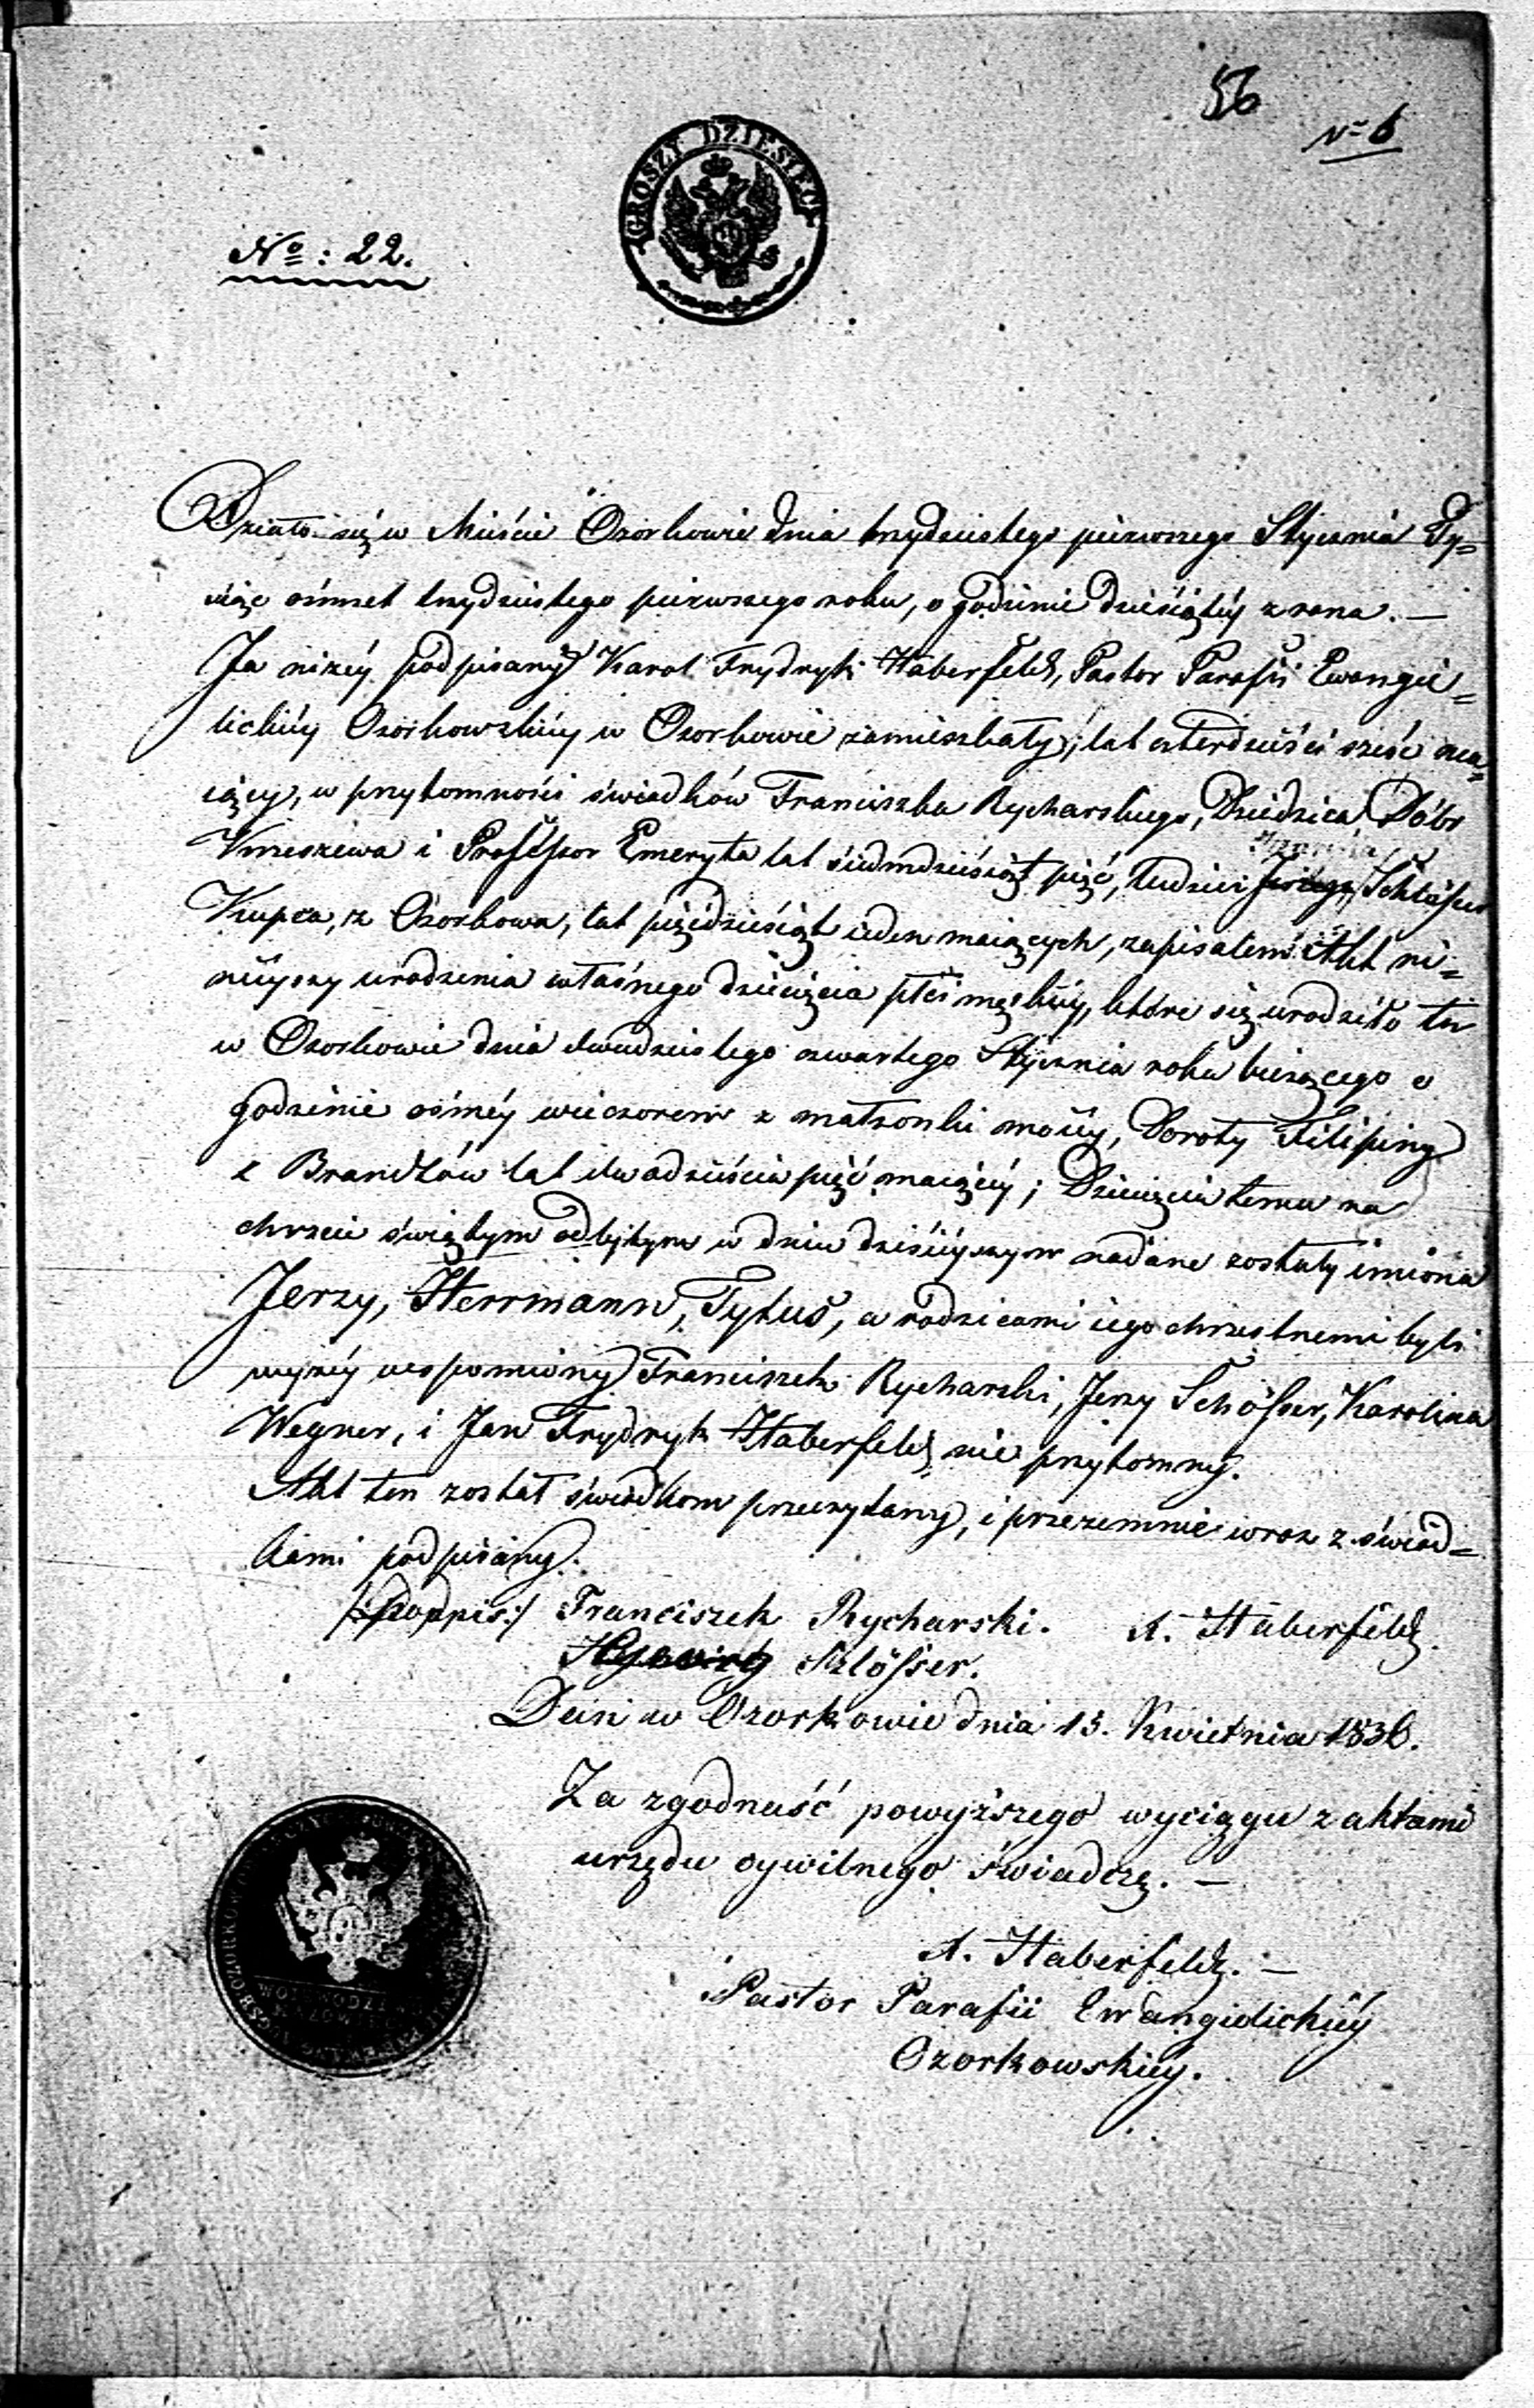 56
N= 6
GROSZY DZIESIĘĆ
Nº: 22.
Działo się w Mieście Ozorkowie dnia trzydziestego pierwszego Stycznia Ty=
siąc ośmset trzydziestego pierwszego roku, o godzinie dziesiątéy z rana. —
Ja niżéy podpisany Karol Frydryk Haberfeld, Pastor Parafii Ewangie=
lickiéy Ozorkowskiéy w Ozorkowie zamieszkały, lat czterdzieści sześć ma=
iący, w przytomności świadków Franciszka Rycharskiego, Dziedzica Dóbr
i Professor Emeryta lat siedmdziesiąt pięć, tudzież Schlösser
Kupca, z Ozorkowa, lat pięćdziesiąt ieden maiących, zapisałem Akt ni=
nieyszy urodzenia własnego dziécięcia płci męzkiéy, które się urodziło tu
w Ozorkowie dnia dwudziestego czwartego Stycznia roku bieżącego o
godzinie ósméy wieczorem z małżonki moiéy, Doroty Filipiny
z Brandtów lat dwadzieścia pięć maiącéy; Dziecięciu temu na
chrzcie świętym odbytym w dniu dzisiéyszym nadane zostały imiona
Jerzy, Herrmann, Tytus, a rodzicami iego chrzestnemi byli
wyżéy wspomniony Franciszek Rycharski, Jerzy Schösser, Karolina
Wegner, i Jan Frydryk Haberfeld nie przytomny.
Akt ten został świadkom przeczytany, i przezemnie wraz z świad=
kami podpisany.
/:Podpis:/ Franciszek Rycharski. K. Haberfeld.
Szlösser.
Dein w Ozorkowie dnia 13. Kwietnia 1836.
Za zgodność powyższego wyciągu z aktami
urzędu cywilnego świadczę. —
K. Haberfeld. —
Pastor Parafii Ewangielickiéy
Ozorkowskiey.